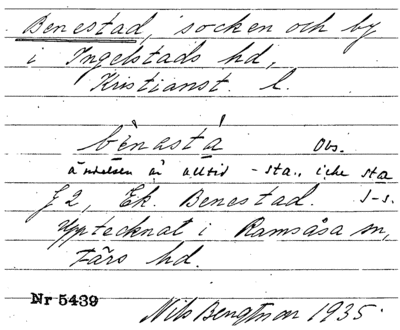 Benestad, socken och by
i Ingelstads hd,
Kristianst. l.
bènastá Obs.
ändelsen är alltid -sta., icke sta
J 2, Ek. Benestad. s-s.
Upptecknat i Ramsåsa sn,
Färs hd.
Nr 5439
Nils Bengtson 1935.